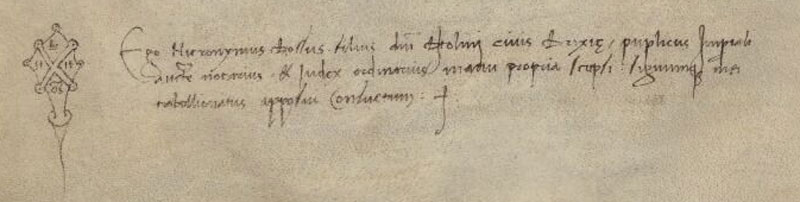 Ego Hieronymus Rossus filius dni Tholmi civis Brixię, puplicus Imperiali
Aucte notarius & Judex ordinarius manu propria scripsi signumq mei
tabellionatus apposui Consuetum :